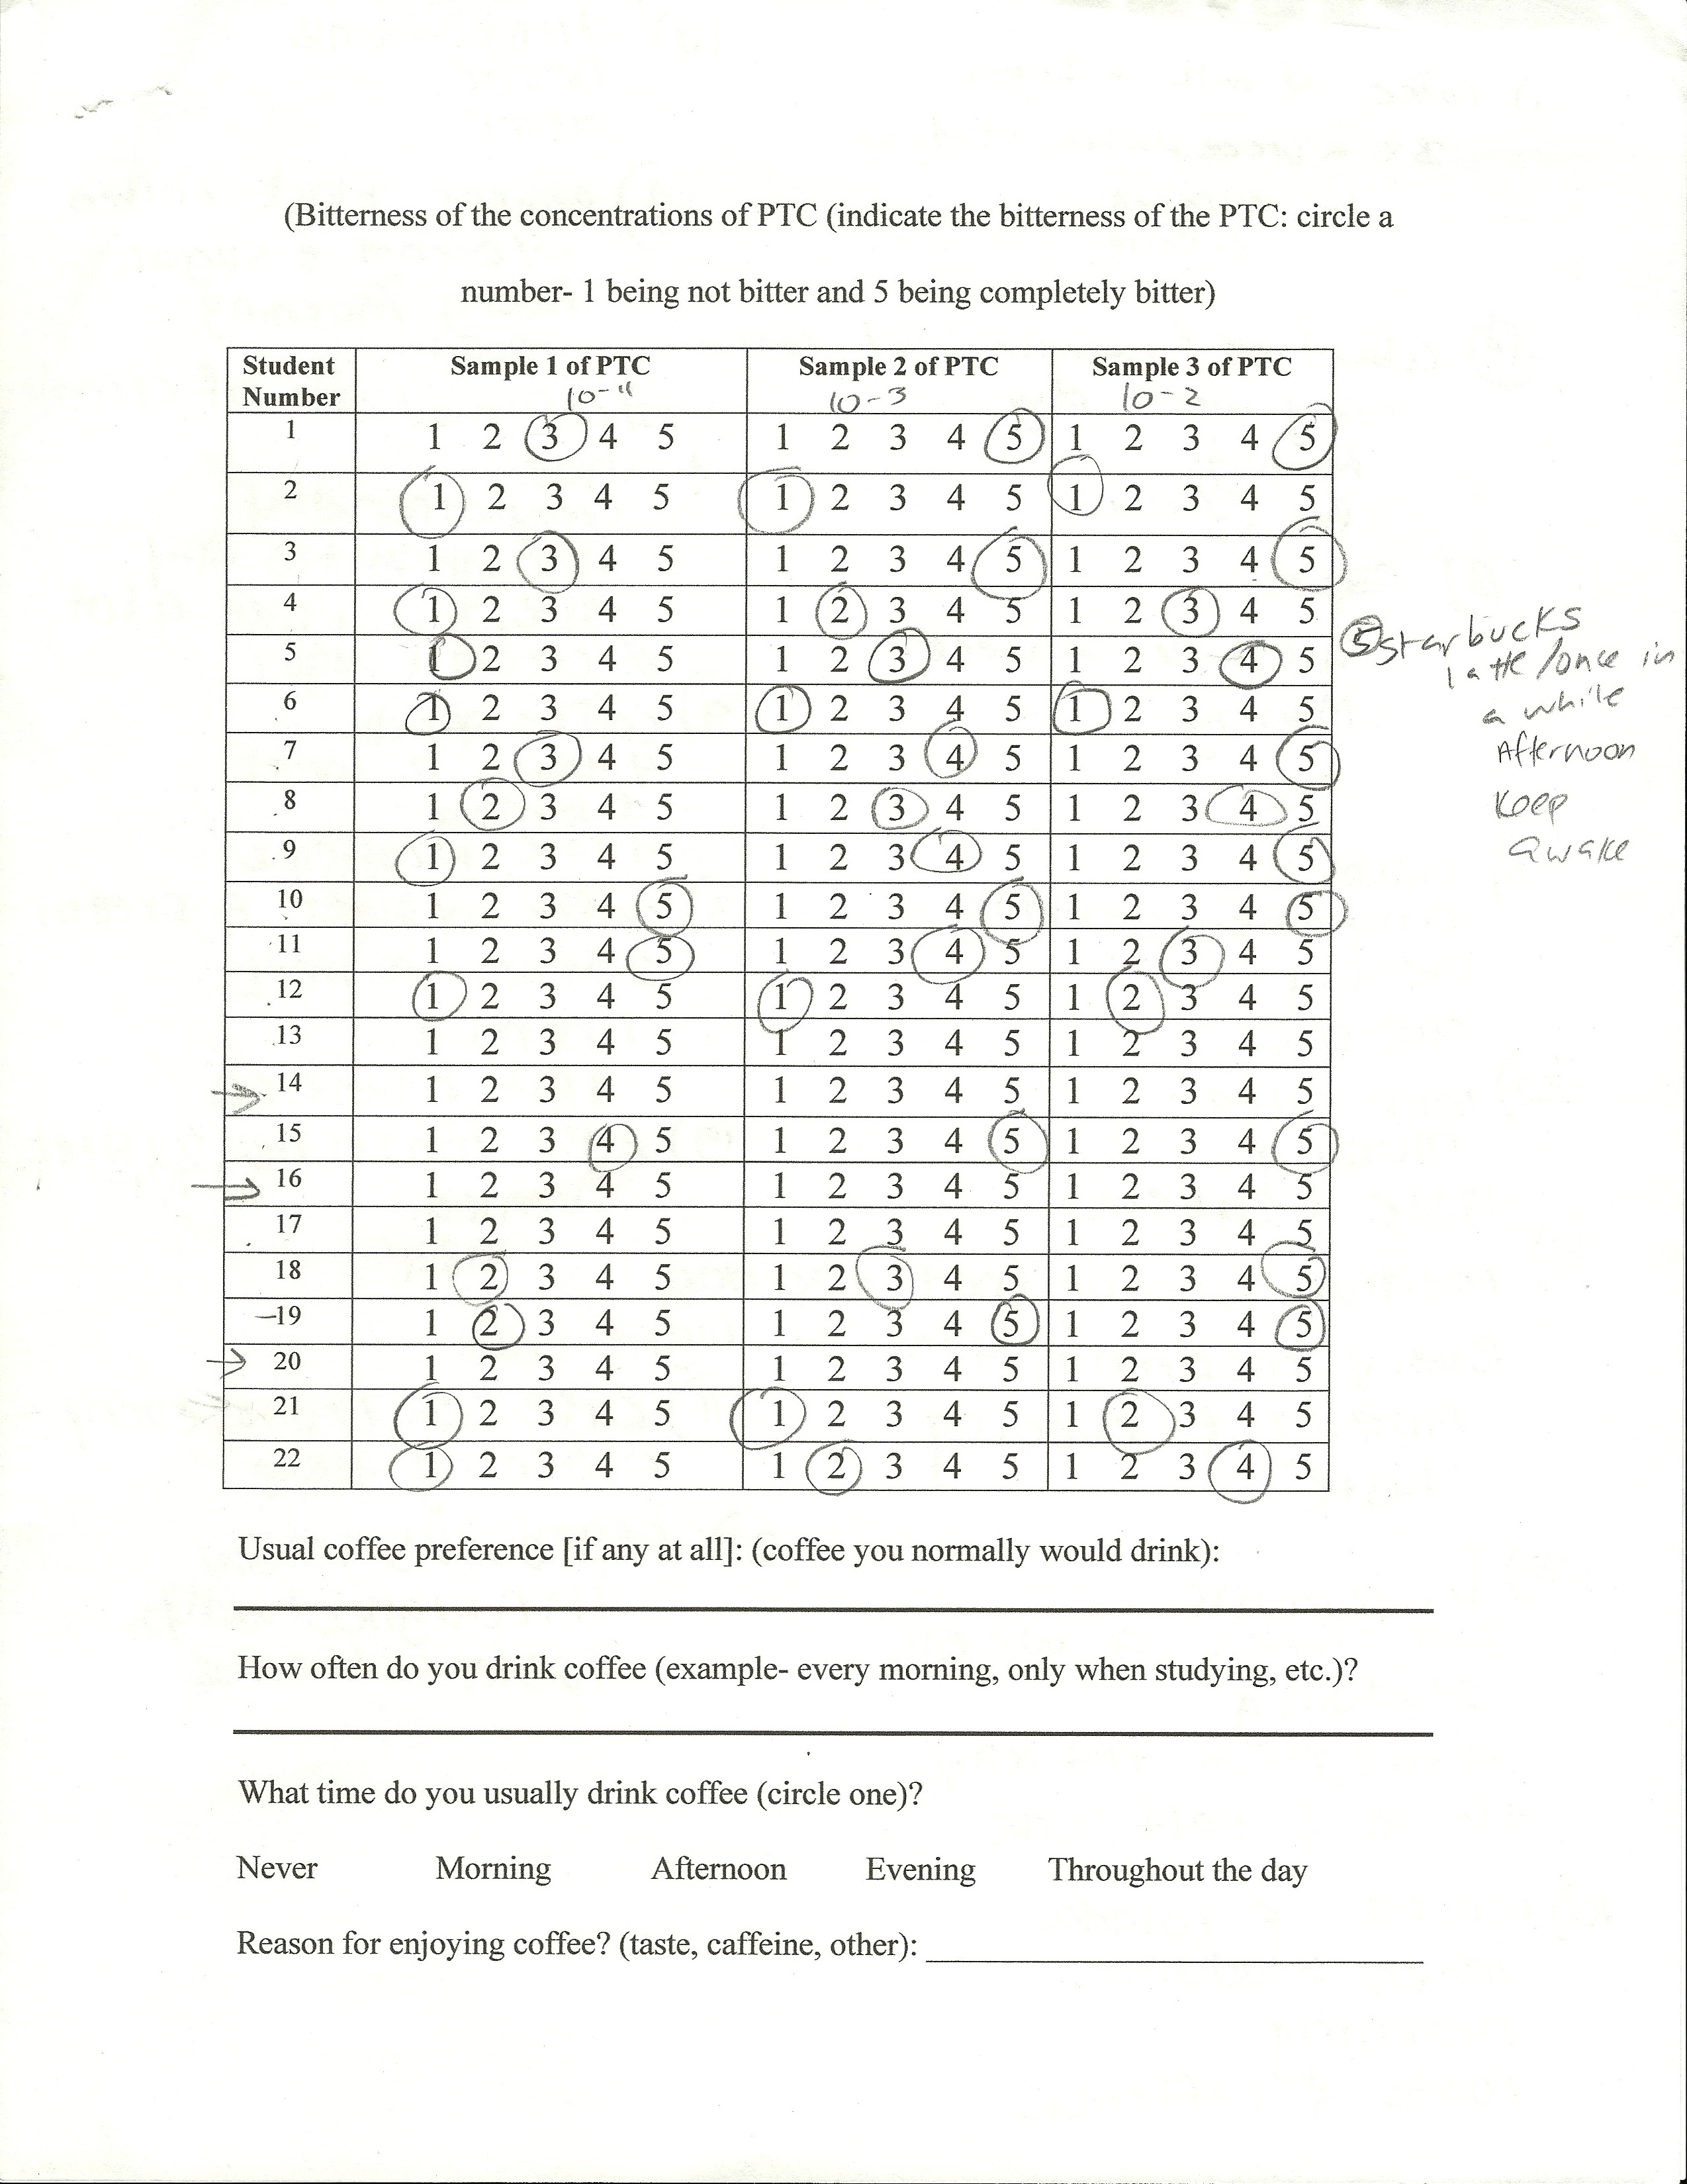 (Bitterness of the concentrations of PTC (indicate the bitterness of the PTC: circle a
number- 1 being not bitter and 5 being completely bitter)
Student Number Sample 1 of PTC Sample 2 of PTC Sample 3 of PTC
10-4 10-3 10-2
1 1 2 3 4 5 1 2 3 4 5 1 2 3 4 5
2 1 2 3 4 5 1 2 3 4 5 1 2 3 4 5
3 1 2 3 4 5 1 2 3 4 5 1 2 3 4 5
4 1 2 3 4 5 1 2 3 4 5 1 2 3 4 5
5 1 2 3 4 5 1 2 3 4 5 1 2 3 4 5
6 1 2 3 4 5 1 2 3 4 5 1 2 3 4 5
7 1 2 3 4 5 1 2 3 4 5 1 2 3 4 5
8 1 2 3 4 5 1 2 3 4 5 1 2 3 4 5
9 1 2 3 4 5 1 2 3 4 5 1 2 3 4 5
10 1 2 3 4 5 1 2 3 4 5 1 2 3 4 5
11 1 2 3 4 5 1 2 3 4 5 1 2 3 4 5
12 1 2 3 4 5 1 2 3 4 5 1 2 3 4 5
13 1 2 3 4 5 1 2 3 4 5 1 2 3 4 5
14 1 2 3 4 5 1 2 3 4 5 1 2 3 4 5
15 1 2 3 4 5 1 2 3 4 5 1 2 3 4 5
16 1 2 3 4 5 1 2 3 4 5 1 2 3 4 5
17 1 2 3 4 5 1 2 3 4 5 1 2 3 4 5
18 1 2 3 4 5 1 2 3 4 5 1 2 3 4 5
19 1 2 3 4 5 1 2 3 4 5 1 2 3 4 5
20 1 2 3 4 5 1 2 3 4 5 1 2 3 4 5
21 1 2 3 4 5 1 2 3 4 5 1 2 3 4 5
22 1 2 3 4 5 1 2 3 4 5 1 2 3 4 5
5 starbucks
latte/once in
a while
Afternoon
Keep
awake
Usual coffee preference [if any at all]: (coffee you normally would drink):
How often do you drink coffee (example- every morning, only when studying, etc.)?
What time do you usually drink coffee (circle one)?
Never Morning Afternoon Evening Throughout the day
Reason for enjoying coffee? (taste, caffeine, other):